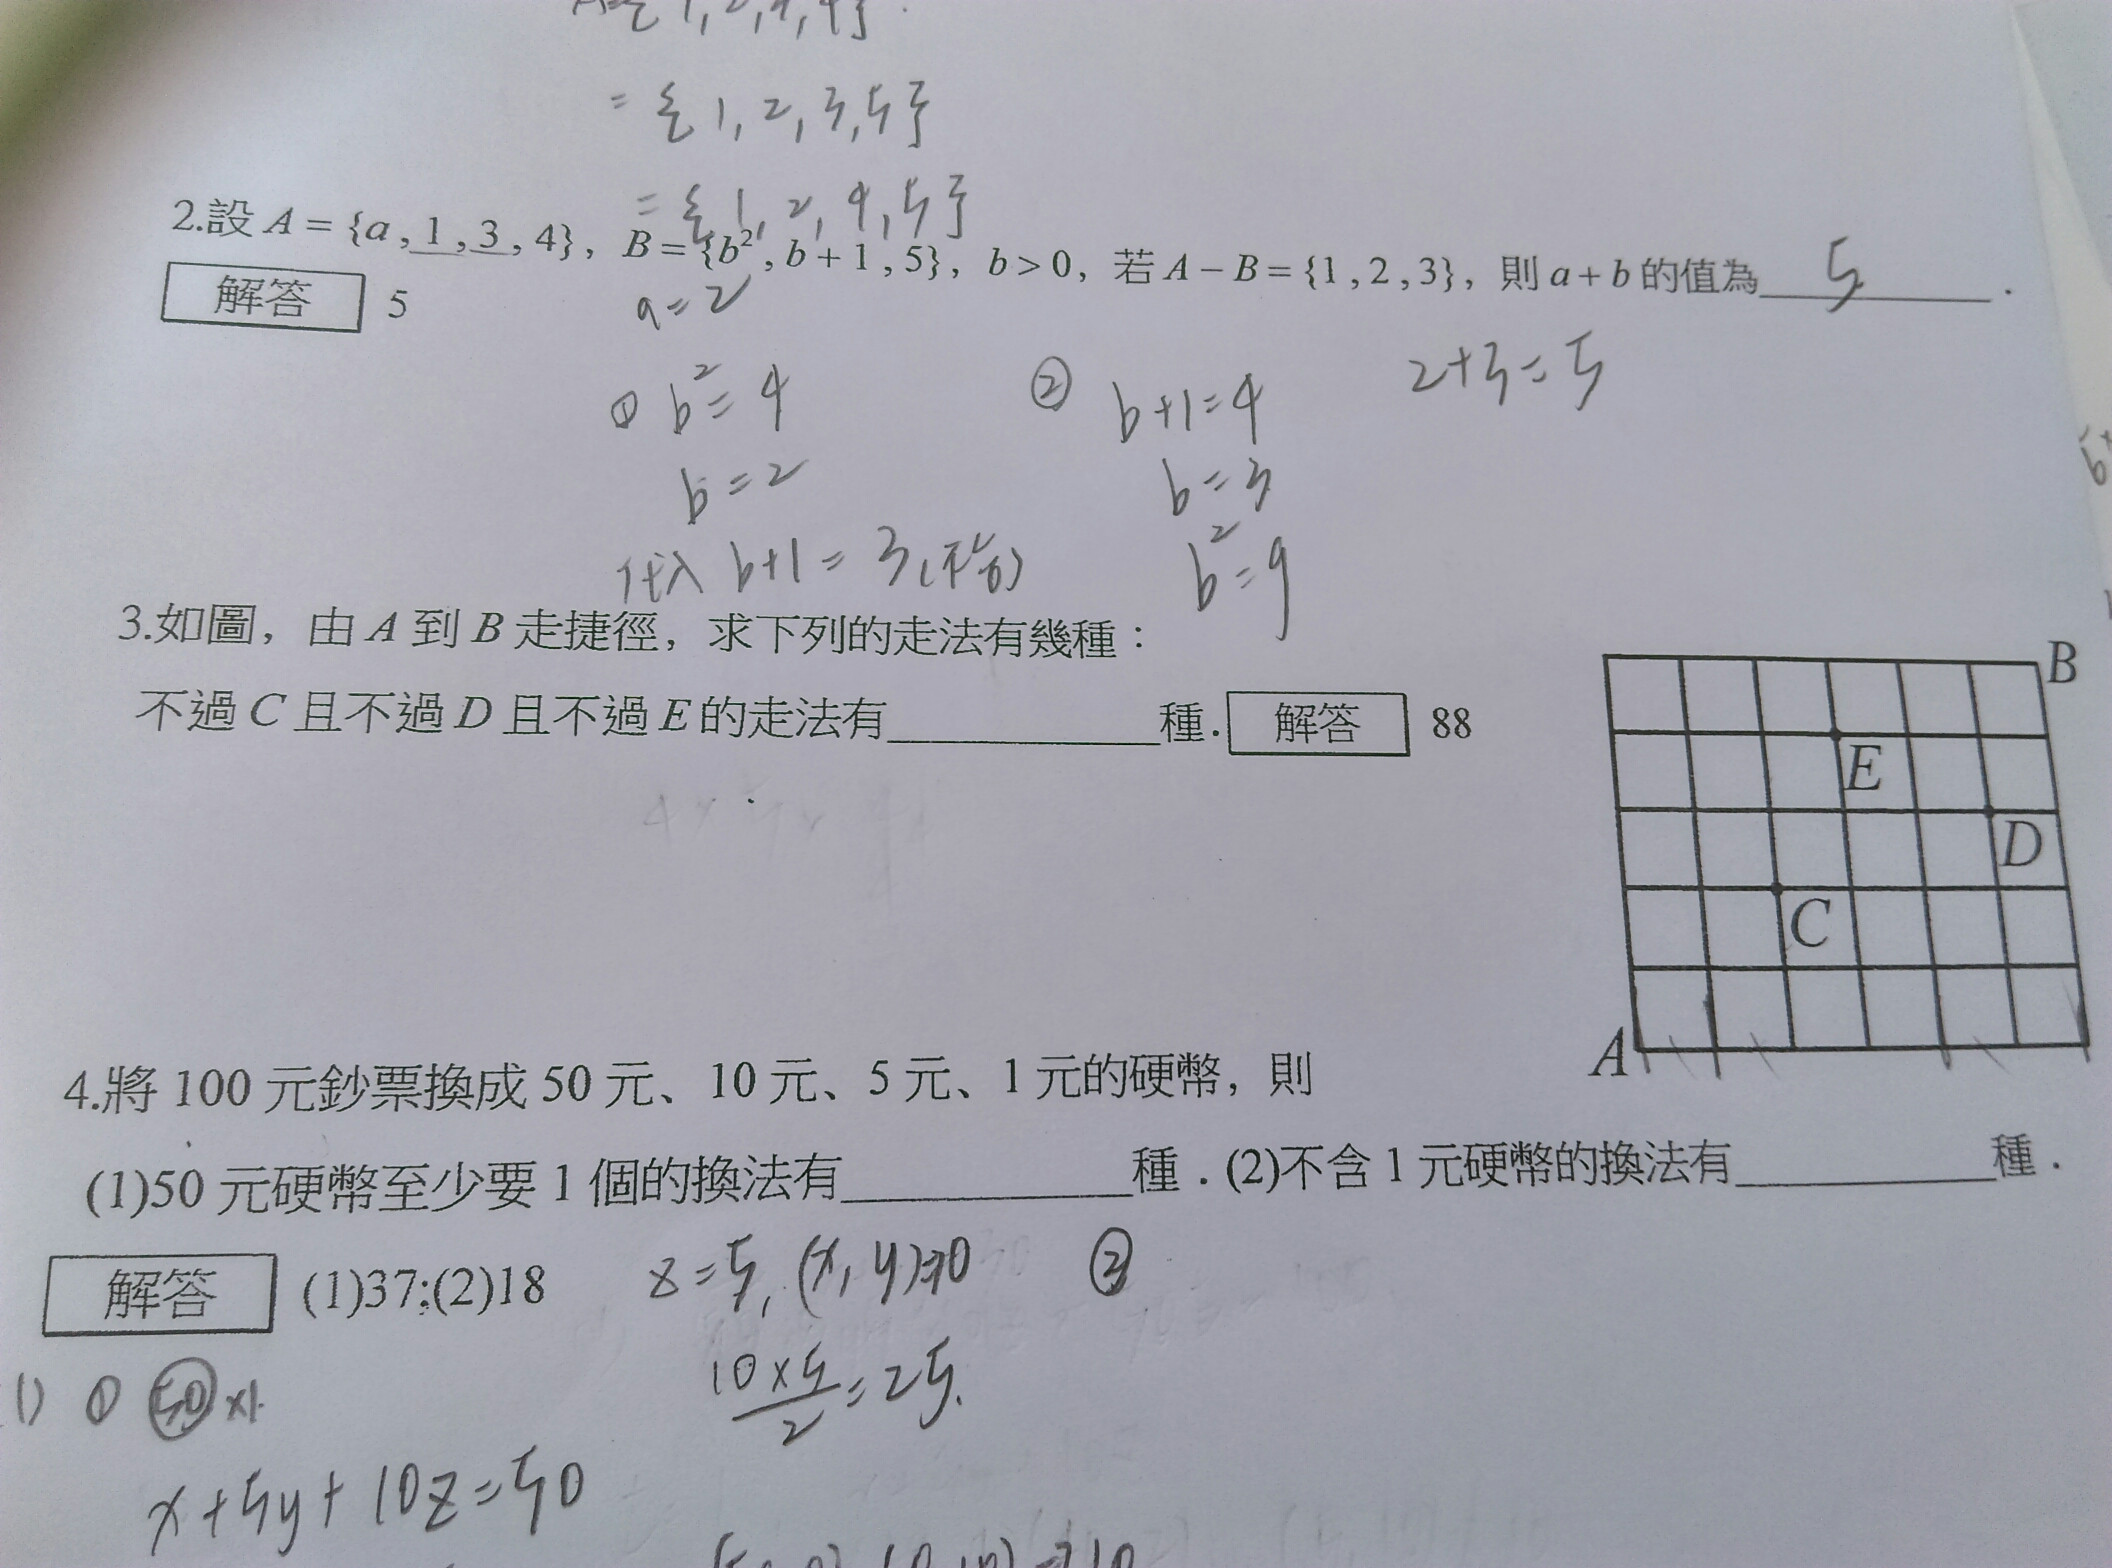 = {1, 2, 3, 5}
= {1, 2, 4, 5}
2.設 A = {a , 1 , 3 , 4}, B = {b², b + 1 , 5}, b > 0, 若 A − B = {1 , 2 , 3}, 則 a + b 的值為 5 .
解答 5
a = 2
① b² = 4
b = 2
代入 b+1 = 3 (不合)
② b+1 = 4
b = 3
b² = 9
2+3=5
3.如圖, 由 A 到 B 走捷徑, 求下列的走法有幾種：
不過 C 且不過 D 且不過 E 的走法有____________種. 解答 88
B
E
D
C
A
4.將 100 元鈔票換成 50 元、10 元、5 元、1 元的硬幣, 則
(1)50 元硬幣至少要 1 個的換法有____________種 . (2)不含 1 元硬幣的換法有____________種 .
解答 (1)37;(2)18
z = 5, (x, y) ⇒ 0
②
10×5/2 = 25.
(1) ① 50 ×1.
x + 5y + 10z = 50